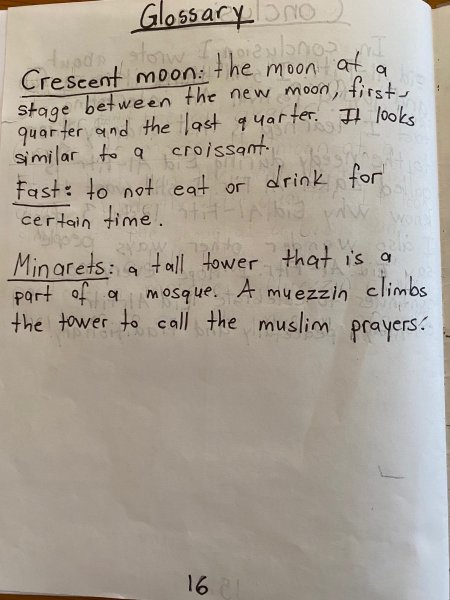 Glossary
Crescent moon: the moon at a
stage between the new moon, first
quarter and the last quarter. It looks
similar to a croissant.
Fast: to not eat or drink for
certain time.
Minarets: a tall tower that is a
part of a mosque. A muezzin climbs
the tower to call the muslim prayers.
16